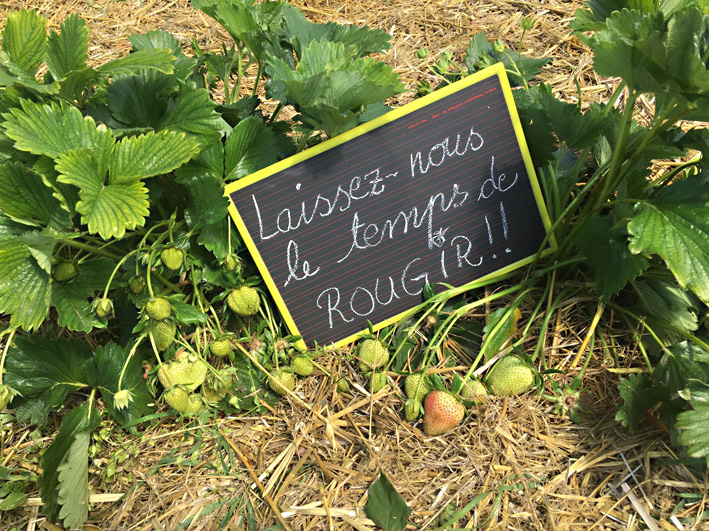 Laissez-nous
le temps de
ROUGIR!!